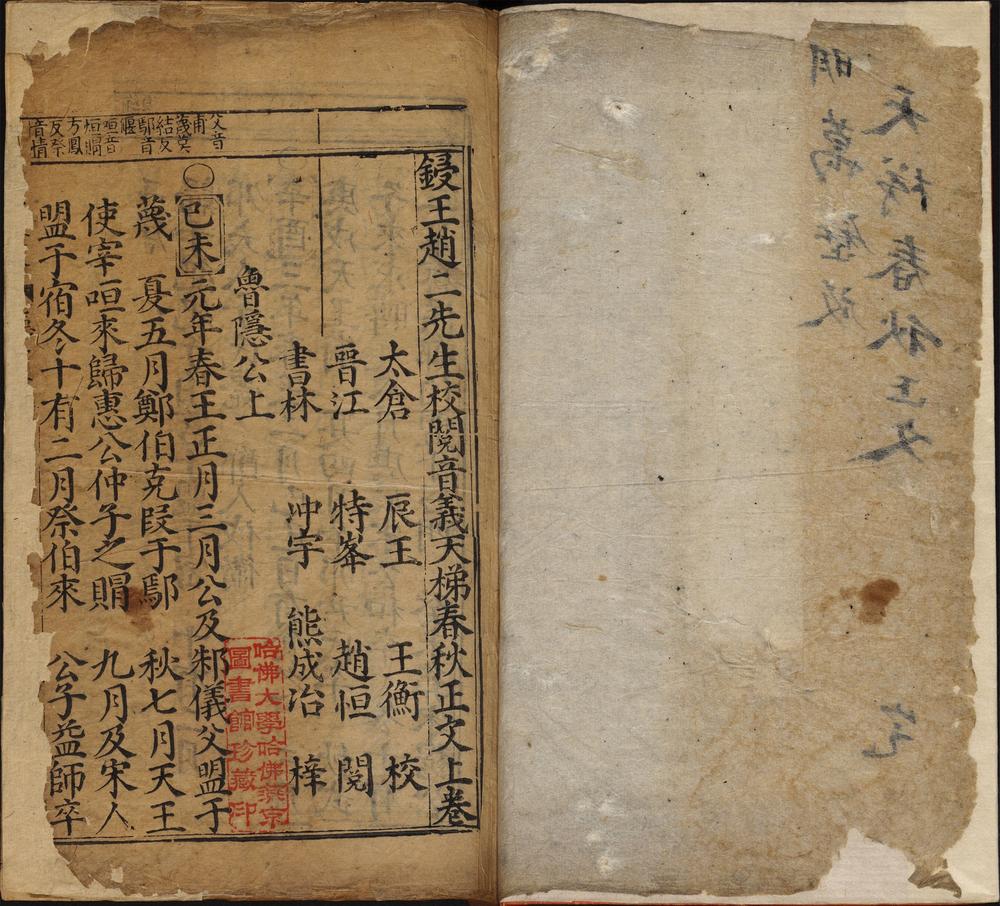 天梯春秋正文
明萬
鋟王趙二先生校閱音義天梯春秋正文上卷
太倉 辰王 王衡 校
晉江 特峯 趙恒 閱
書林 冲宇 熊成冶 梓
魯隱公上
○己未元年春王正月三月公及邾儀父盟于
蔑 夏五月鄭伯克段于鄢 秋七月天王
使宰咺來歸惠公仲子之賵 九月及宋人
盟于宿冬十有二月祭伯來 公子益師卒
父音
甫
蔑莫
結反
鄢音
偃
咺音
烜賵
方鳳
反祭
音
哈佛大學哈佛燕京
圖書館珍藏印